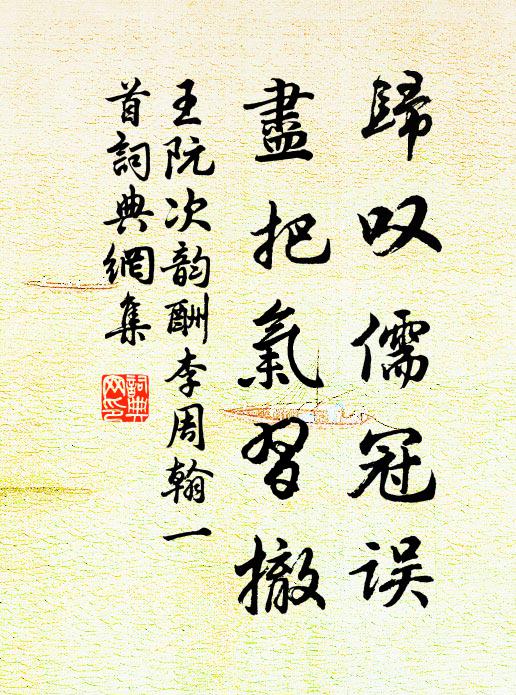 歸叹儒冠误
盡把氣習撤
王阮次韵酬李周翰一
首詞典網集
詞典
网印